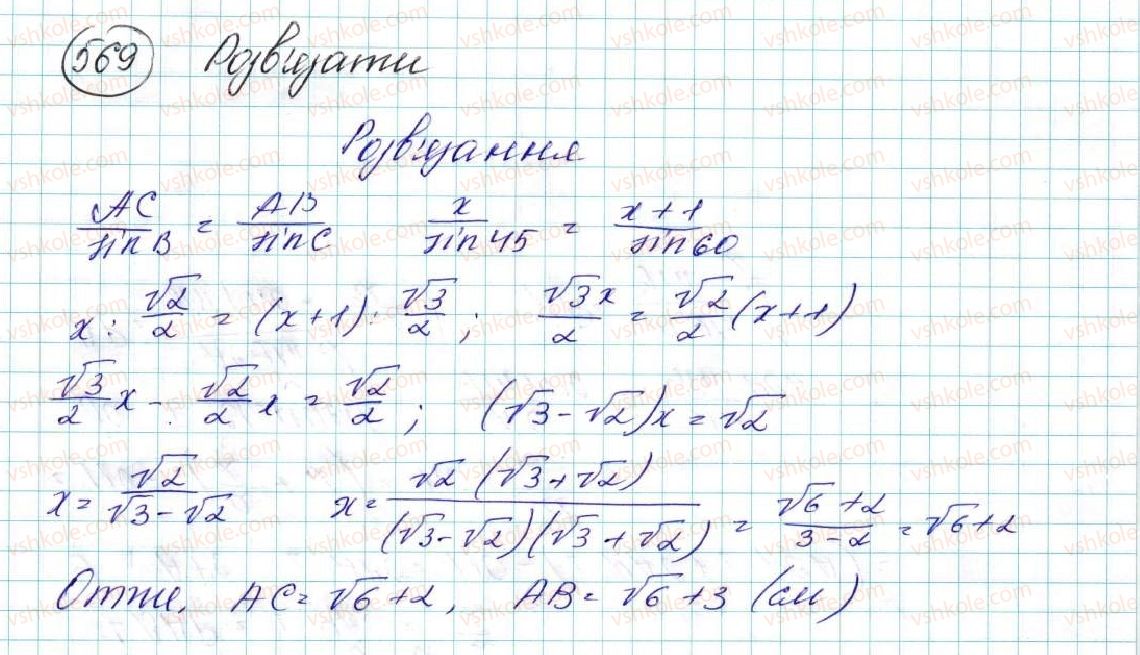 569 Розв'язати
Розв'язання
AC/sin B = AB/sin C x/sin 45 = (x+1)/sin 60
x : √2/2 = (x+1) : √3/2 ; √3x/2 = √2/2 (x+1)
√3/2 x - √2/2 x = √2/2 ; (√3-√2)x = √2
x = √2/(√3-√2) x = √2 (√3+√2)/((√3-√2)(√3+√2)) = (√6+2)/(3-2) = √6+2
Отже, AC = √6+2, AB = √6+3 (см)